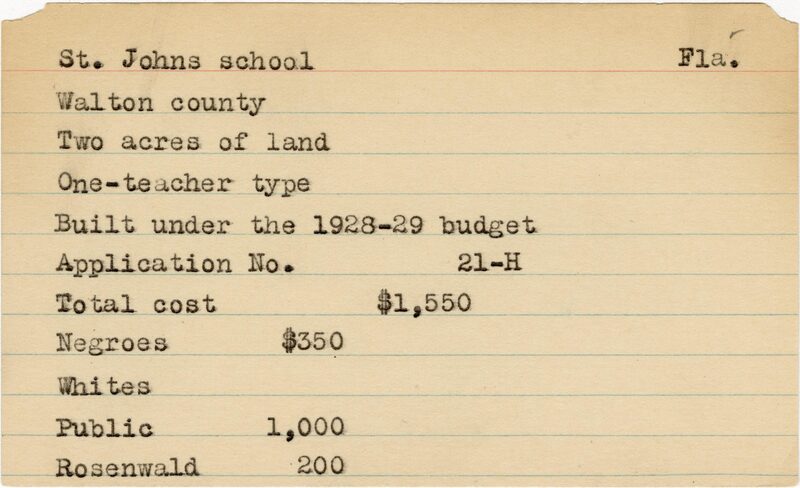 St. Johns school Fla.
Walton county
Two acres of land
One-teacher type
Built under the 1928-29 budget
Application No. 21-H
Total cost $1,550
Negroes $350
Whites
Public 1,000
Rosenwald 200